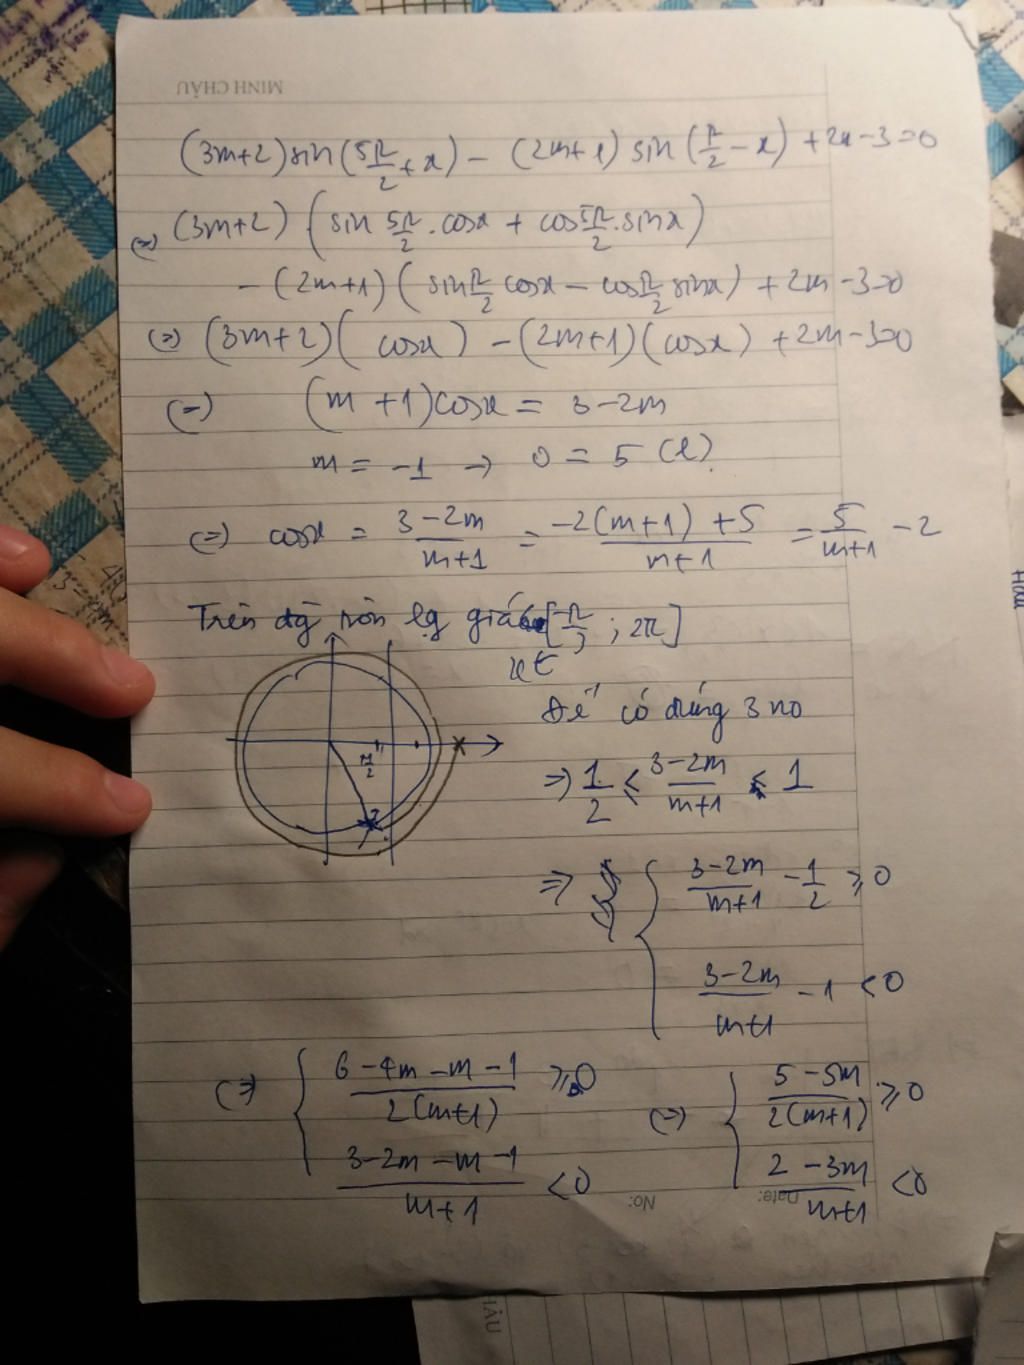 MINH CHÂU
(3m+2)sin(5π/2 + x) − (2m+1) sin(π/2 − x) + 2x − 3 = 0
(=) (3m+2) (sin 5π/2 . cosx + cos 5π/2 . sinx)
− (2m+1) (sin π/2 cosx − cos π/2 sinx) + 2m − 3 = 0
(=) (3m+2)( cosx ) − (2m+1)(cosx) + 2m − 3 = 0
(=) (m + 1)cosx = 3 − 2m
m = −1 → 0 = 5 (l)
(=) cosx = (3 − 2m)/(m+1) = (−2(m+1) + 5)/(m+1) = 5/(m+1) − 2
Trên đg tròn lg giác [−π/3 ; 2π]
xét
Để có đúng 3 no
=> 1/2 ≤ (3−2m)/(m+1) < 1
=> { (3−2m)/(m+1) − 1/2 ≥ 0
(3−2m)/(m+1) − 1 < 0
(=) { (6 − 4m − m − 1)/(2(m+1)) ≥ 0 (=) { (5 − 5m)/(2(m+1)) ≥ 0
(3−2m − m − 1)/(m+1) < 0 (2 − 3m)/(m+1) < 0
No: Date:
HÂU